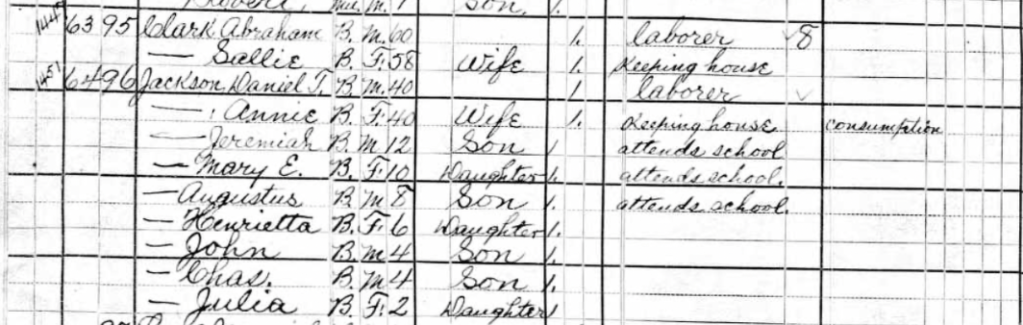 Robert, Mu. M. 1 Son. 1.
1447 63 95 Clark Abraham B. M. 60 1. laborer 8
— Sallie B. F. 58 Wife 1. Keeping house
1451 64 96 Jackson Daniel T. B. M. 40 1 laborer
— Annie B. F. 40 Wife 1. Keeping house consumption
— Jeremiah B. M 12 Son 1 attends school
— Mary E. B. F. 10 Daughter 1. attends school.
— Augustus B M 8 Son 1. attends school.
— Henrietta B. F. 6 Daughter 1.
— John B. M 4 Son 1.
— Chas. B. M 4 Son 1.
— Julia B. F. 2 Daughter 1